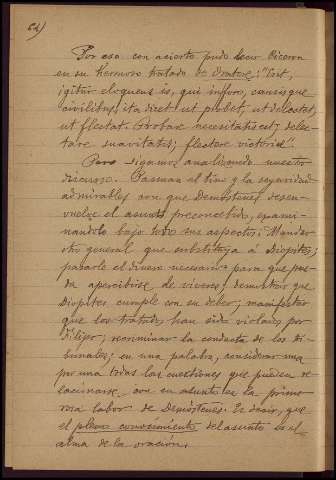 64)
Por eso con acierto pudo decir Ciceron
en su hermoso tratado de Oratore: "Erit,
igitur eloquens is, qui in foro, causisque
civilibus, ita dicet ut probet, ut delectet,
ut flectat. Probare necesitatis est; delec-
tare suavitatis; flectere victoriæ".
Pero sigamos analizando nuestro
discurso. Pasman el tino y la seguridad
admirables con que Demóstenes desen-
vuelve el asunto preconcebido, exami-
nandolo bajo todos sus aspectos: Mandar
otro general que substituya á Diopites;
pasarle el dinero necesario para que pue-
da apercibirse de viveres; demostrar que
Diopites cumple con su deber; manifestar
que los tratados han sido violados por
Filipo; recriminar la conducta de los Tri-
bunales; en una palabra, considerar una
por una todas las cuestiones que pueden re-
lacionarse con su asunto es la primo-
rosa labor de Demóstenes. Es decir, que
el pleno conocimiento del asunto es el
alma de la oración.